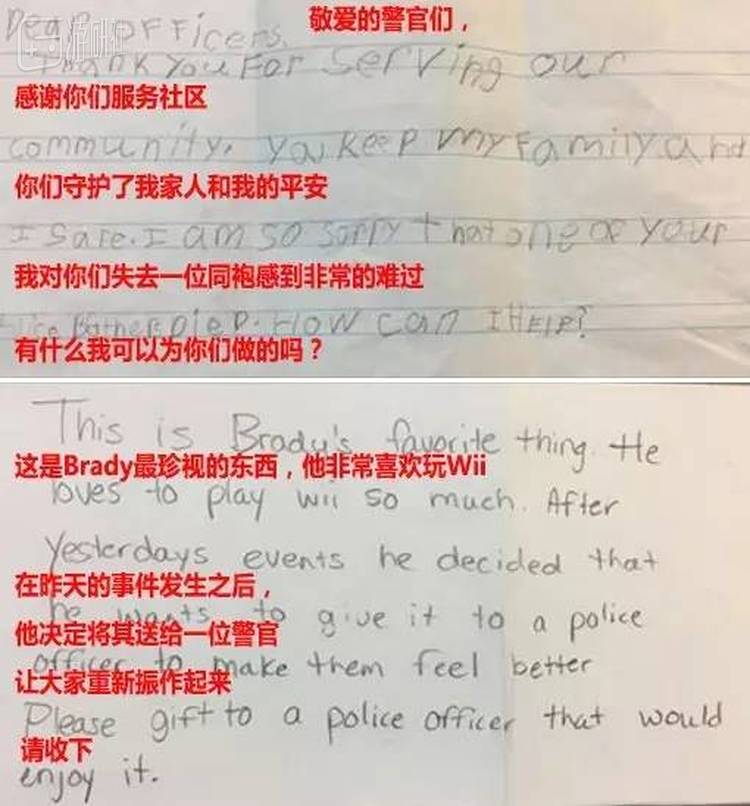 Dear Officers,
敬爱的警官们，
Thank you For Serving our
感谢你们服务社区
community. You Keep my Family and
你们守护了我家人和我的平安
I Safe. I am so sorry that one of your
我对你们失去一位同袍感到非常的难过
Died. How can I HELP?
有什么我可以为你们做的吗？
This is Brady's favorite thing. He
这是Brady最珍视的东西，他非常喜欢玩Wii
loves to play wii so much. After
Yesterdays events he decided that
在昨天的事件发生之后，
he wants to give it to a police
他决定将其送给一位警官
officer to make them feel better
让大家重新振作起来
Please gift to a police officer that would
请收下
enjoy it.